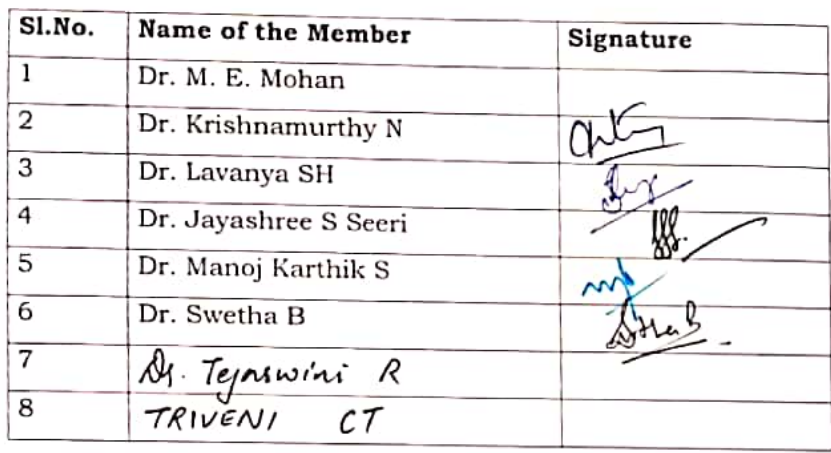 Sl.No. Name of the Member Signature
1 Dr. M. E. Mohan
2 Dr. Krishnamurthy N
3 Dr. Lavanya SH
4 Dr. Jayashree S Seeri
5 Dr. Manoj Karthik S
6 Dr. Swetha B
7 Dr. Tejaswini R
8 TRIVENI CT